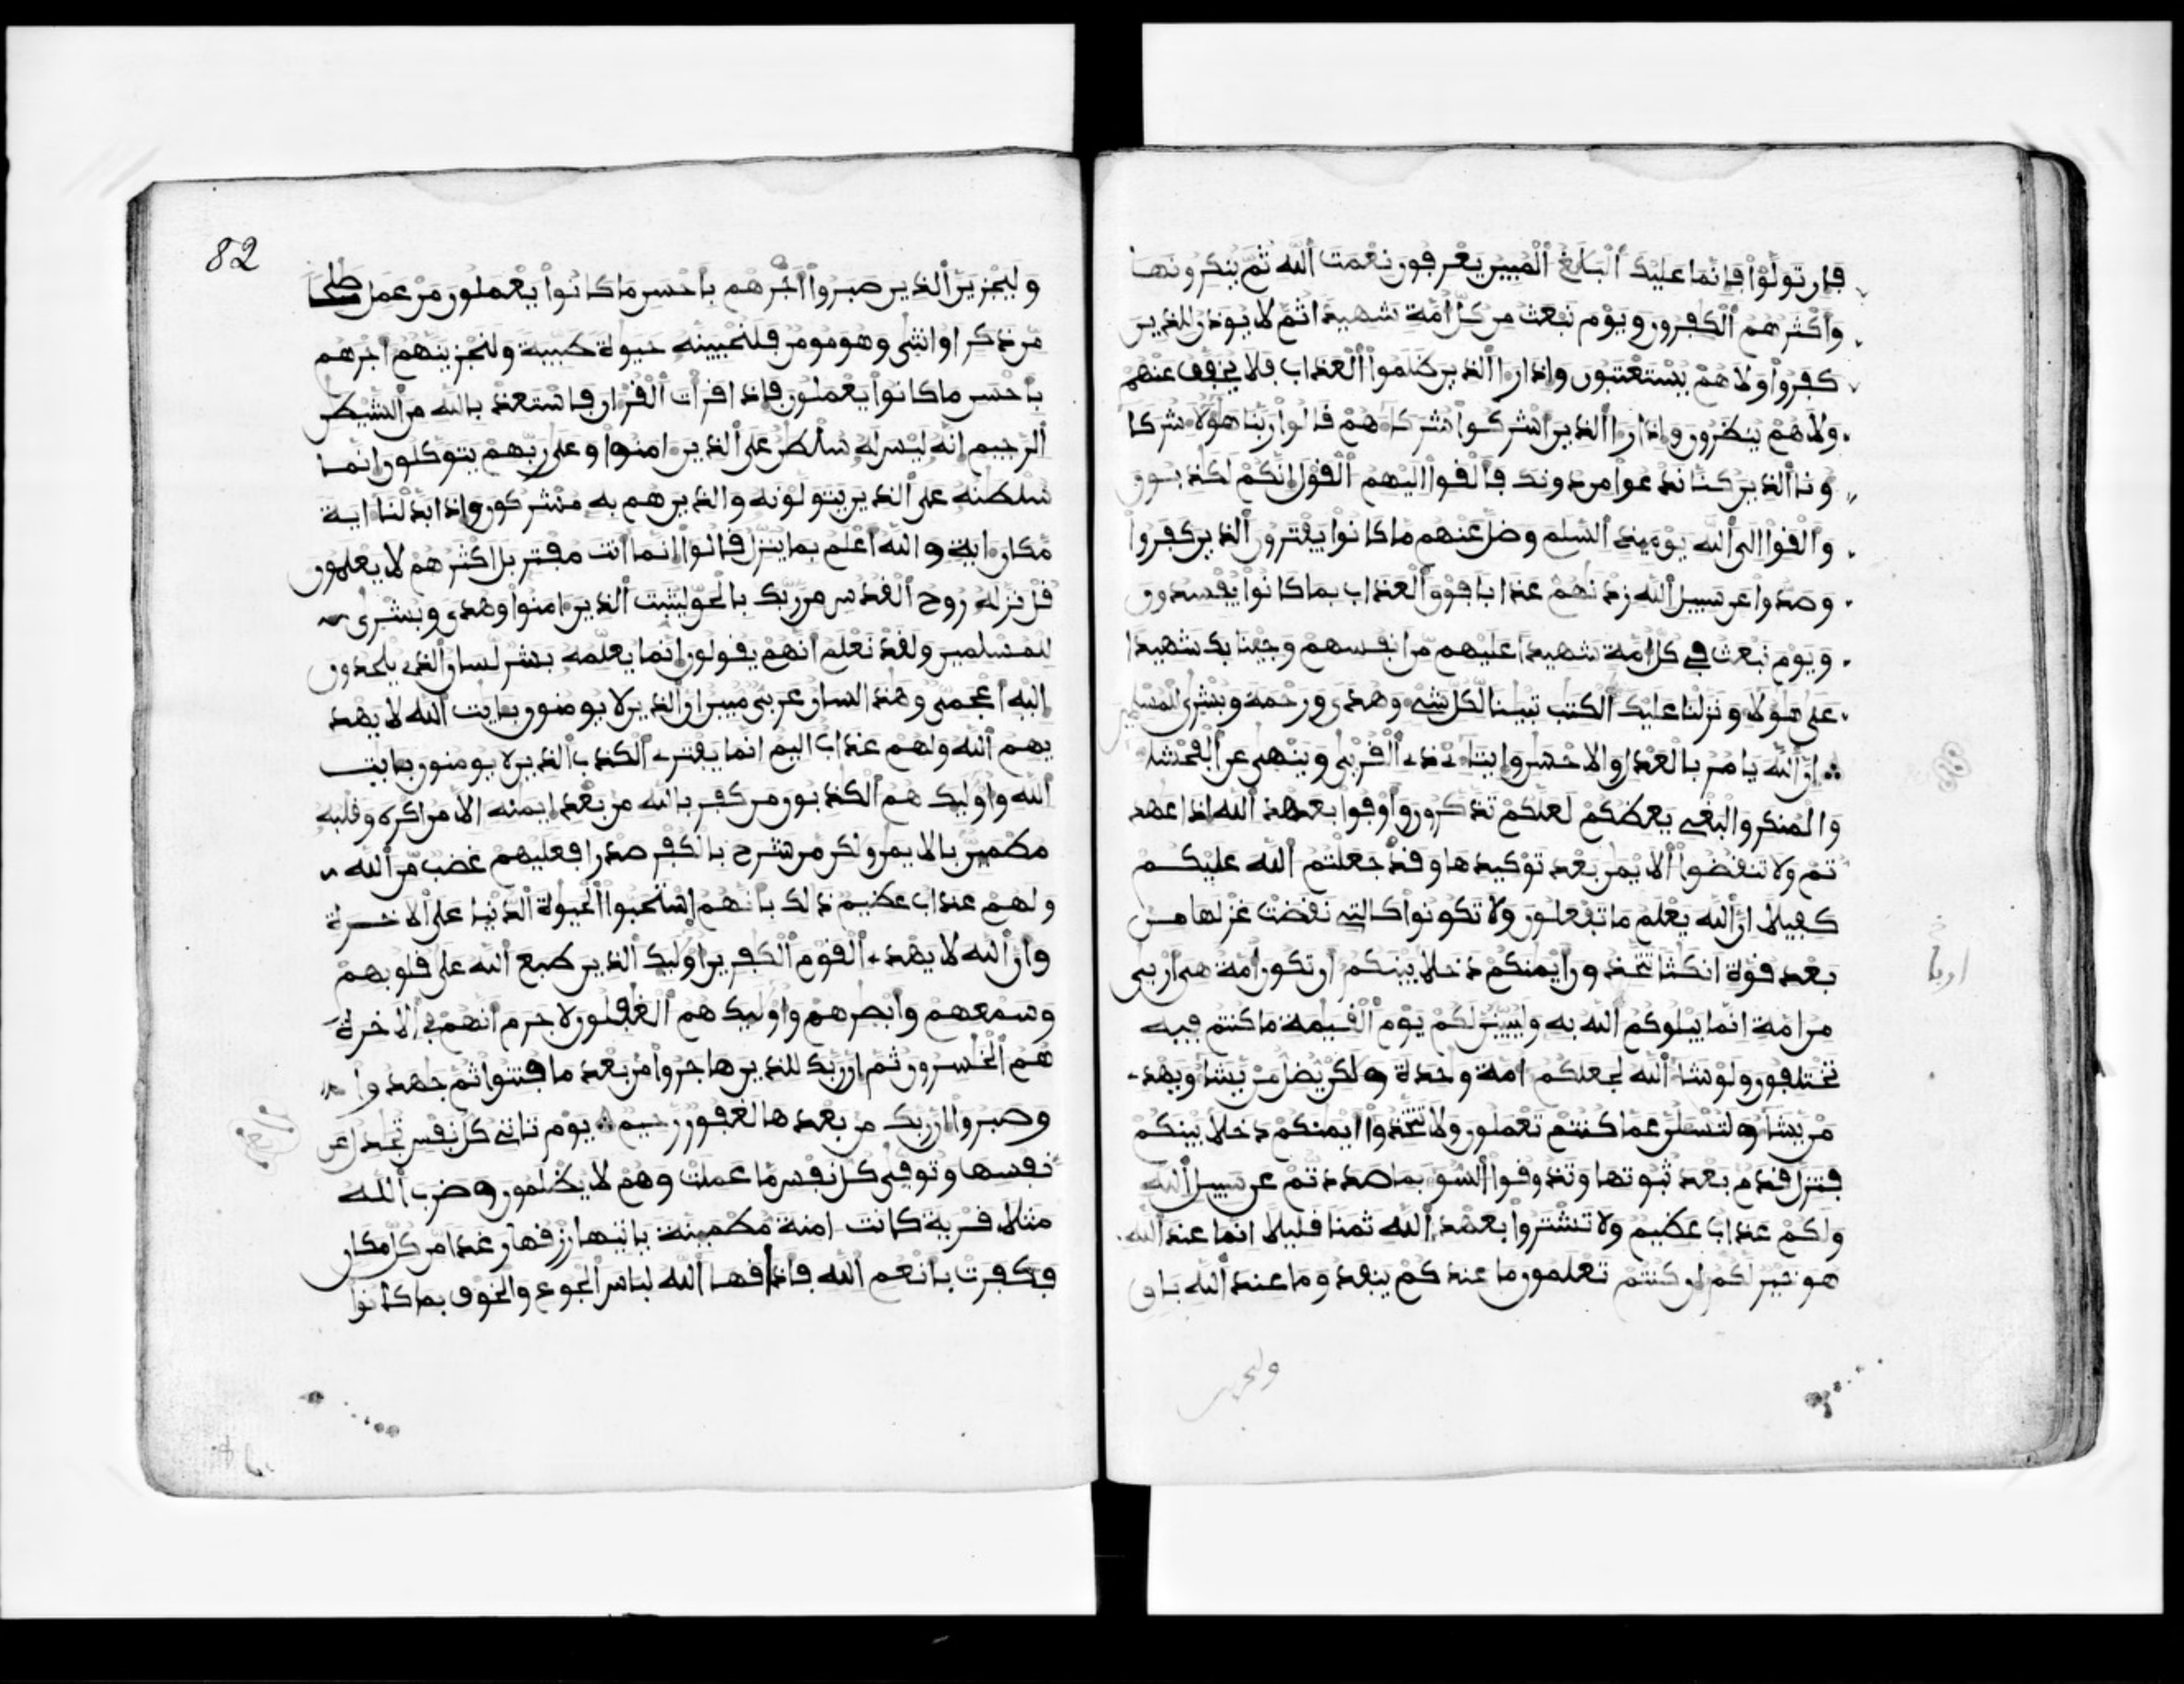 فإن تولوا فإنما عليك البلغ المبين يعرفون نعمت الله ثم ينكرونها
وأكثرهم الكفرون ويوم نبعث من كل امة شهيدا ثم لا يوذن للذين
كفروا ولا هم يستعتبون وإذا را الذين ظلموا العذاب فلا يخفف عنهم
ولا هم ينظرون وإذا را الذين اشركوا شركاهم قالوا ربنا هولا شركا
ونا الذين كنا ندعوا من دونك فألقوا اليهم القول إنكم لكذبون
وألقوا الى الله يومئذ السلم وضل عنهم ما كانوا يفترون الذين كفروا
وصدوا عن سبيل الله زدنهم عذابا فوق العذاب بما كانوا يفسدون
ويوم نبعث في كل امة شهيدا عليهم من انفسهم وجينا بك شهيدا
على هولا ونزلنا عليك الكتب تبينا لكل شي وهدى ورحمة وبشرى للمسلمين
إن الله يامر بالعدل والاحسن وايتاء ذي القربى وينهى عن الفحشا
والمنكر والبغي يعظكم لعلكم تذكرون وأوفوا بعهد الله إذا عهد
تم ولا تنقضوا الايمن بعد توكيدها وقد جعلتم الله عليكم
كفيلا ان الله يعلم ما تفعلون ولا تكونوا كالتي نقضت غزلها من
بعد قوة انكثا تتخذون أيمنكم دخلا بينكم ان تكون أمة هي أربى
من امة انما يبلوكم الله به وليبينن لكم يوم القيمة ما كنتم فيه
تختلفون ولو شا الله لجعلكم امة وحدة ولكن يضل من يشا ويهدي
من يشا ولتسلن عما كنتم تعملون ولا تتخذوا ايمنكم دخلا بينكم
فتزل قدم بعد ثبوتها وتذوقوا السو بما صددتم عن سبيل الله
ولكم عذاب عظيم ولا تشتروا بعهد الله ثمنا قليلا انما عند الله
هو خير لكم ان كنتم تعلمون ما عندكم ينفد وما عند الله باق
وليجزين
82
وليجزين الذين صبروا اجرهم بأحسن ما كانوا يعملون من عمل صلحا
من ذكر او انثى وهو مومن فلنحيينه حيوة طيبة ولنجزينهم اجرهم
بأحسن ما كانوا يعملون فإذا قرات القران فاستعذ بالله من الشيطن
الرجيم انه ليس له سلطن على الذين امنوا وعلى ربهم يتوكلون انما
سلطنه على الذين يتولونه والذين هم به مشركون وإذا بدلنا اية
مكان اية والله اعلم بما ينزل قالوا انما انت مفتر بل اكثرهم لا يعلمون
قل نزله روح القدس من ربك بالحق ليثبت الذين امنوا وهدى وبشرى
للمسلمين ولقد نعلم انهم يقولون انما يعلمه بشر لسان الذي يلحدون
اليه اعجمي وهذا لسان عربي مبين ان الذين لا يومنون بايت الله لا يهد
يهم الله ولهم عذاب اليم انما يفتري الكذب الذين لا يومنون بايت
الله واوليك هم الكذبون من كفر بالله من بعد ايمنه الا من اكره وقلبه
مطمين بالايمن ولكن من شرح بالكفر صدرا فعليهم غضب من الله
ولهم عذاب عظيم ذلك بانهم استحبوا الحيوة الدنيا على الاخرة
وان الله لا يهدي القوم الكفرين اوليك الذين طبع الله على قلوبهم
وسمعهم وابصرهم واوليك هم الغفلون لا جرم انهم في الاخرة
هم الخسرون ثم ان ربك للذين هاجروا من بعد ما فتنوا ثم جهدوا
وصبروا ان ربك من بعدها لغفور رحيم يوم تاتي كل نفس تجدل عن
نفسها وتوفى كل نفس ما عملت وهم لا يظلمون وضرب الله
مثلا قرية كانت امنة مطمينة ياتيها رزقها رغدا من كل مكان
فكفرت بانعم الله فاذاقها الله لباس الجوع والخوف بما كانوا